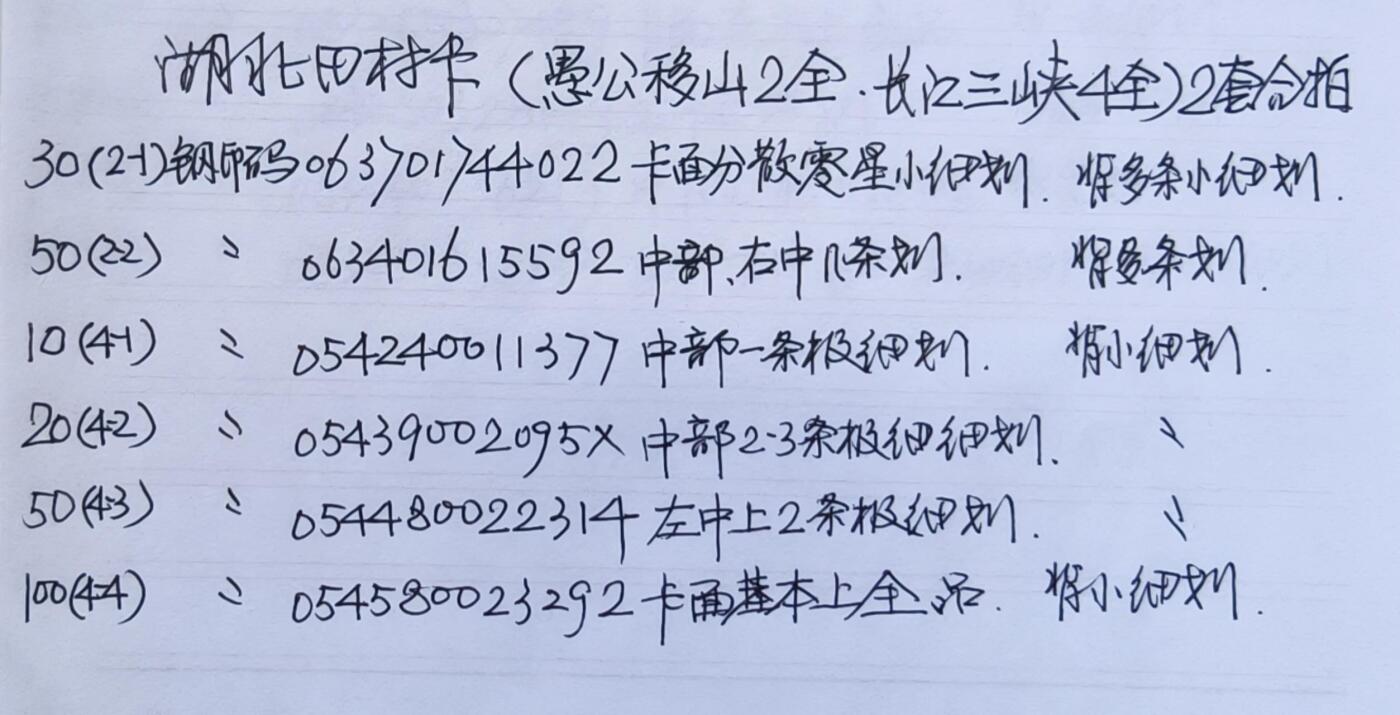 湖北田村卡(愚公移山2全.长江三峡4全)2套合拍
30(2-1)钢印码063701744022卡面分散零星小细划.背多条小细划.
50(2-2) 〃 063401615592中部、右中几条划.背多条划.
10(4-1) 〃 054240011377中部一条极细划.背小细划.
20(4-2) 〃 05439002095X中部2-3条极细细划.〃
50(4-3) 〃 054480022314左中上2条极细划.〃
100(4-4) 〃 054580023292卡面基本上全品.背小细划.